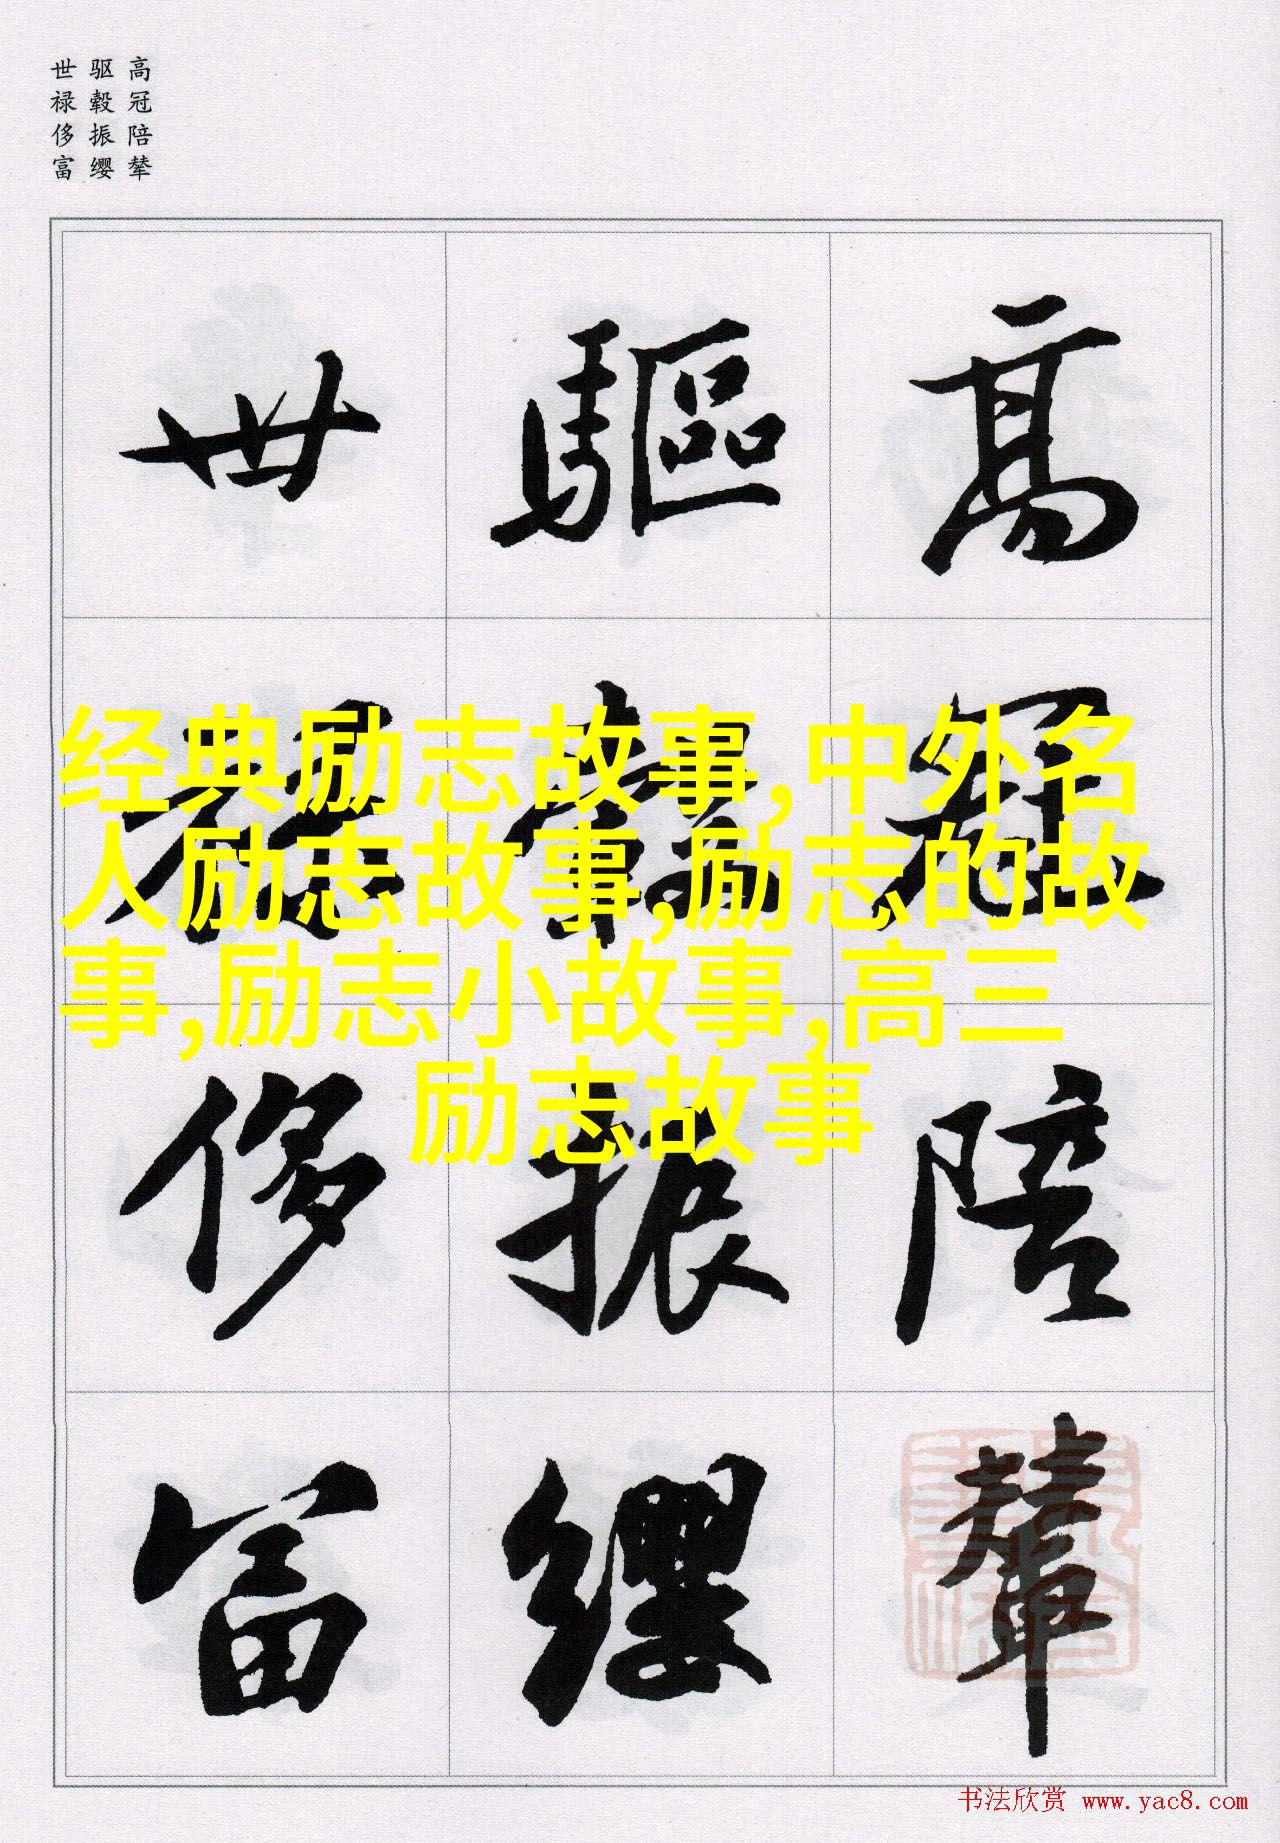 高冠陪辇
驱毂振缨
世禄侈富
高冠陪輦
驅轂振纓
世禄侈富
经典励志故事,中外名
人励志故事,励志的故
事,励志小故事,高三
励志故事
书法欣赏 www.yac8.com